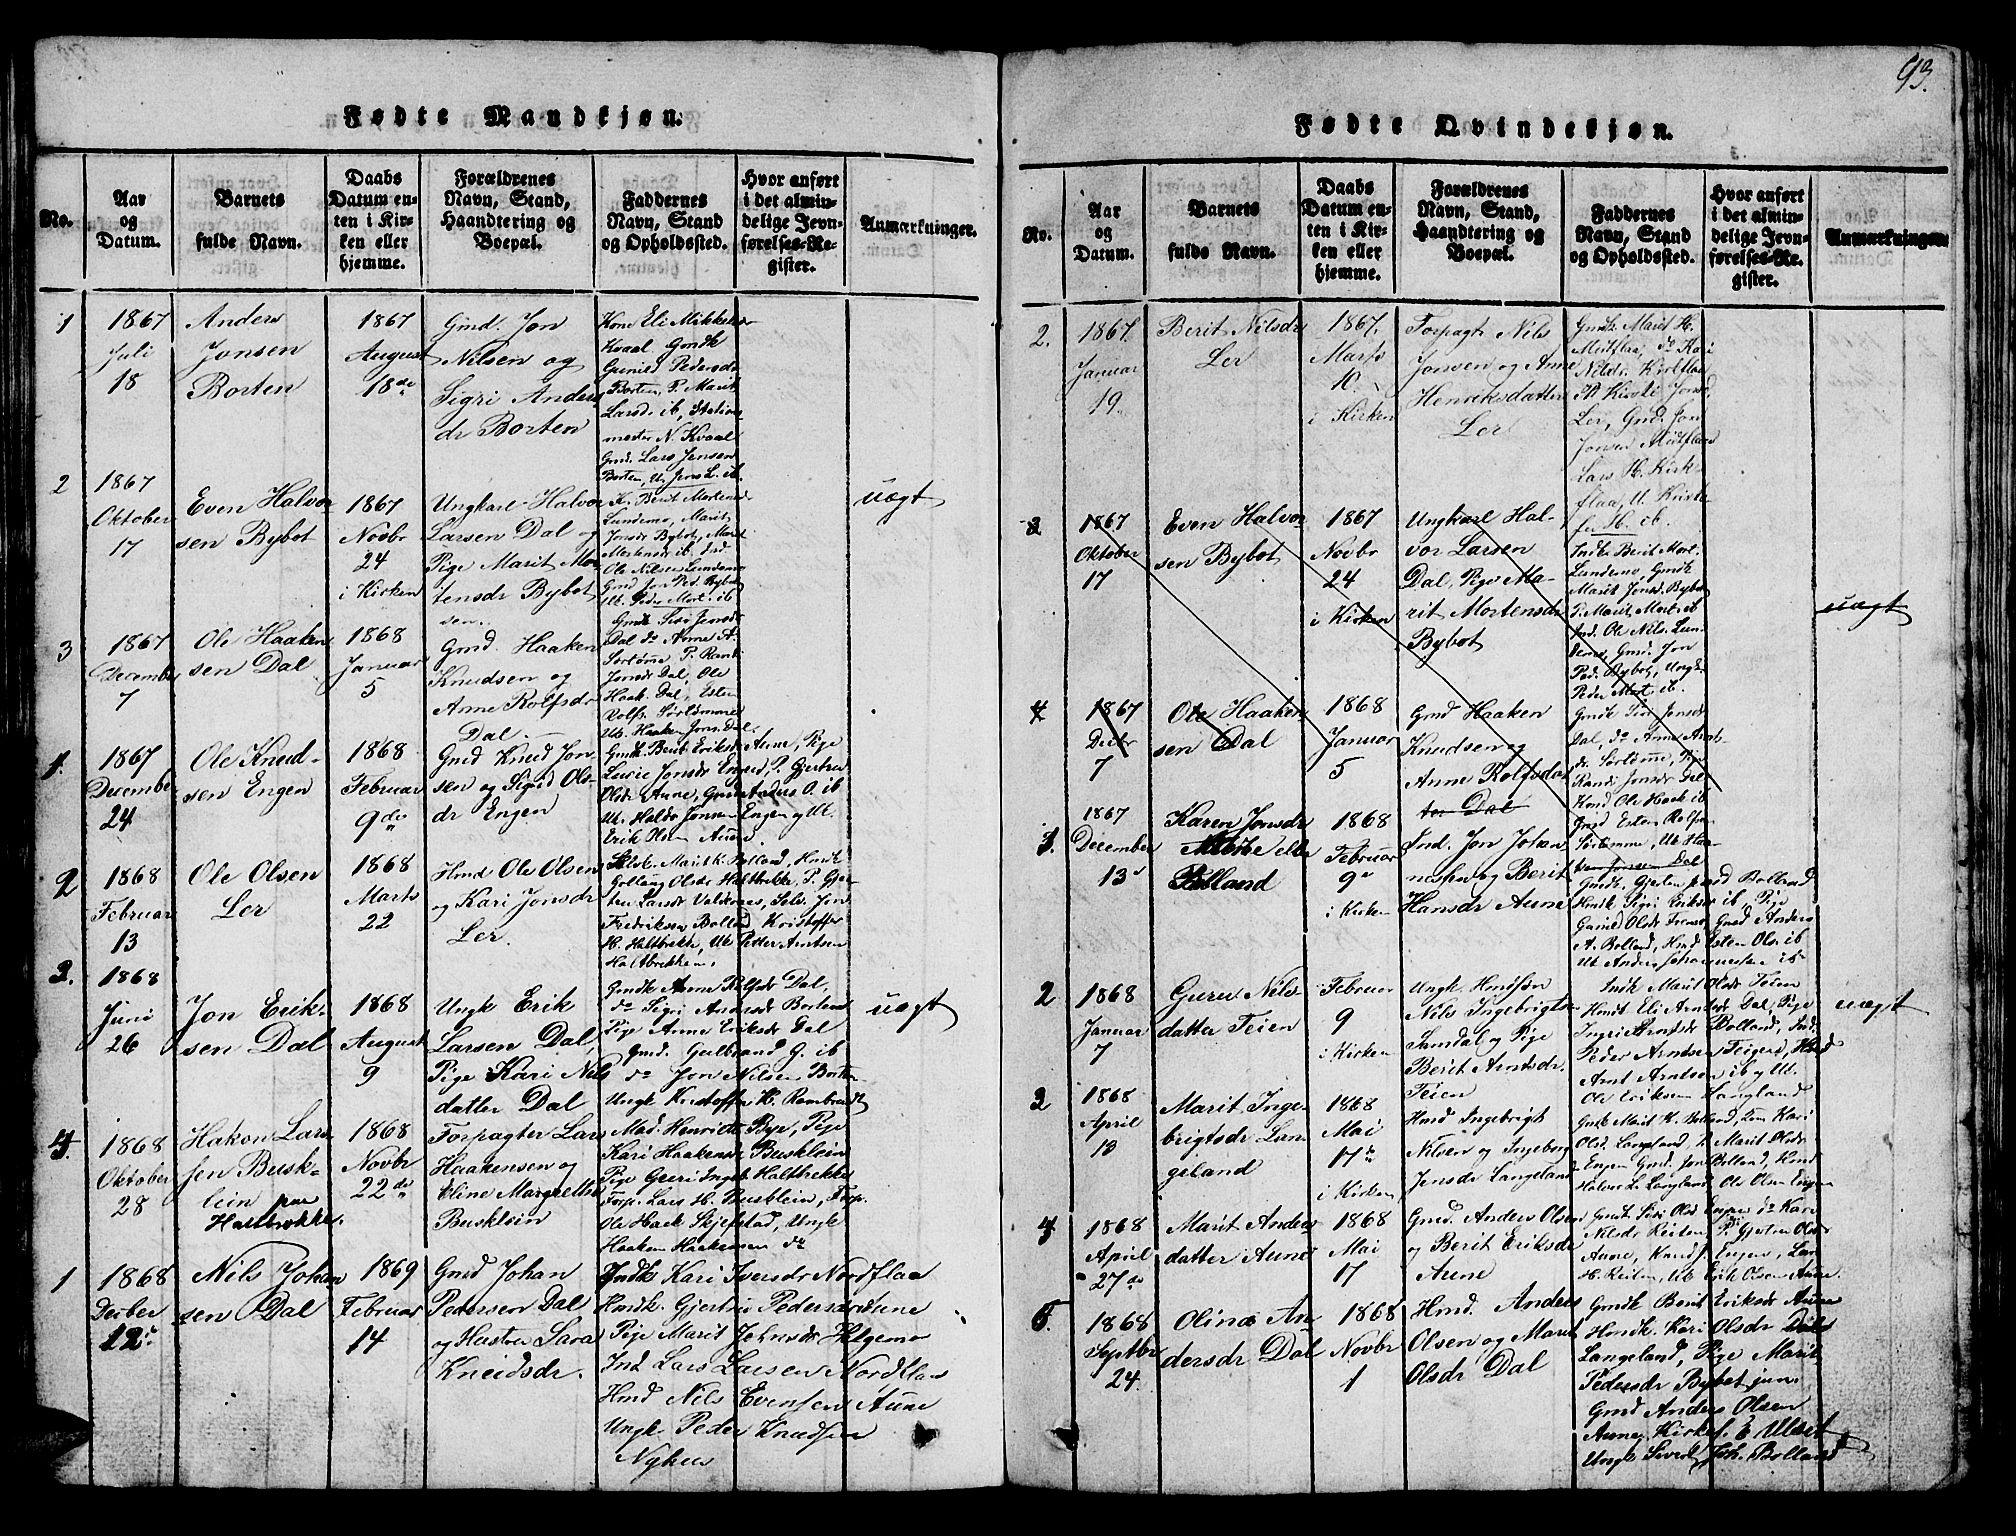 93.
Fødte Mandkjøn.
No.
Aar
og
Datum.
Barnets
fulde Navn.
Daabs
Datum en-
ten i Kir-
ken eller
hjemme.
Forældrenes
Navn, Stand,
Haandtering og
Boepæl.
Faddernes
Navn, Stand
og Opholdssted.
Hvor anført
i det almin-
delige Jevn-
førelses-Re-
gister.
Anmærkninger.
1
1867
Juli
18
Anders
Jonsen
Borten
1867
August
18de
Gmd. Jon
Nilsen og
Sigri Anders
dr Borten
Kone Eli Mikkelsdr
Kvaal Gmdk
Gunild Pedersdr
Borten P. Marit
Larsdr ib, Stations
mester N. Kvaal
Gmd. Lars Jensen
Borten, U. Jens L. ib.
2
1867
Oktober
17
Even Halvor
sen Bybot
1867
Novbr
24
i Kirken
Ungkarl Halvor
Larsen Dal og
Pige Marit Mor
tensdr Bybot
K. Berit Mortensd
Lundemo, Marit
Jonsdr Bybot, Marit
Mortensdr ib, Ind
Ole Nilsen Lundemo
Gmd Jon Ped. Bybot
U. Peder Mort. ib
uægt
3
1867
December
7
Ole Haaken
sen Dal
1868
Januar
5
Gmd. Haaken
Knudsen og
Anne Rolfsdr
Dal.
Gmdk Siri Jensdr
Dal do Anne A.
Sørtømme P. Randi
Jonsdr Dal, Ole
Haak. Dal, Esten
Rolfs. Sørtømme
U. Haaken Jons. Dal
1.
1867
December
24
Ole Knud-
sen Engen
1868
Februar
9de
Gmd Knud Jon
sen og Sigrid Ols-
dr Engen
Gmdk. Berit Eriksdr Aune, Pige
Olsdr Aune,
Ut. Haldo Jonsen Engen og Ut.
Erik Olsen Aune
2
1868
Februar
13
Ole Olsen
Ler
1868
Marts
22
Hmd Ole Olsen
og Kari Jonsdr
Ler.
Marit K. Bolland, Hmdk
Olsdr Haltbrekke, P. Gjer
tru Larsdr
Fredriksen Bolland, Kristoffer
H. Haltbrekke, Ut Petter Arntsen
Haltbrekken.
3.
1868
Juni
26
Jon Erik-
sen Dal
1868
August
9
Ungk Erik
Larsen Dal,
Pige Kari Nils
datter Dal
Gmdk Anne Rolfsdr Dal,
do Sigri Andersdr Borten
Pige Anne Eriksdr Dal
Gmd. Gulbrand G. ib
do Jon Nilsen Borten
Ungk Kristoffer H. Rambraut
uægt
4.
1868
Oktober
28
Hakon Lars
sen Busk-
lein paa
Haltbrekke.
1868
Novbr
22de
Forpagter Lars
Haakensen og
Eline Margrethe
Busklein
Mad. Henriette Bye, Pige
Kari Haakensdr Busklein
Pige Guri Ingebr. Haltbrekke
Forp. Lars H. Busklein, Forp.
Ole Haak Skjefstad, Ungk
Haaken Haakensen do
1
1868
Decber
12te
Nils Johan
sen Dal
1869
Februar
14
Gmd Johan
Pedersen Dal
og Hustru Sara
Knudsdr.
Indk Kari Iversdr Nordflaa
Hmdk. Gjertru Pedersdr Aune
Pige Marit Johnsdr Helgemo
Ind Lars Larsen Nordflaa
Hmd Nils Evensen Aune
Ungk. Peder Knudsen
Nyhus
Fødte Qvindekjøn.
No.
Aar
og
Datum.
Barnets
fulde Navn.
Daabs
Datum en-
ten i Kir-
ken eller
hjemme.
Forældrenes
Navn, Stand,
Haandtering og
Boepæl.
Faddernes
Navn, Stand
og Opholdssted.
Hvor anført
i det almin-
delige Jevn-
førelses-Re-
gister.
Anmærkninger
2.
1867.
Januar
19
Berit Nilsdr
Ler
1867.
Marts
10
i Kirken
Forpagtr Nils
Jonsen og Anne
Henriksdatter
Ler
Gmdk Marit H.
Medflaa, do Kari
Nilsdr Kirkflaa
Jonsd.
Ler, Gmd. Jon
Jonsen Medflaa
Lars H. Kirk-
flaa, U. Kristof-
fer H. ib.
3
1867
Oktober
17
Even Halvor
sen Bybot
1867
Novbr
24
i Kirken
Ungkarl Hal-
vor Larsen
Dal, Pige Ma-
rit Mortensdr
Bybot
Indk Berit Mort.
Lundemo, Gmdk
Marit Jonsd. Bybot
P. Marit Mort. ib
Ind. Ole Nils. Lun-
demo, Gmd. Jon
Ped. Bybot, Ungk
Peder Mort ib.
uægt
4
1867
Decbr
7
Ole Haaken
sen Dal
1868
Januar
5
Gmd Haaken
Knudsen og
Anne Rolfsdat
ter Dal
Gmdk Siri Jonsdr
Dal, do Anne Arnt
dr. Sørtømme, Pige
Randi Jonsdr Dal
Hmd Ole Haak ib
Gmd Esten Rolfsen
Sørtømme, Ut Haa-
ken Jonsen Dal
1.
1867
December
13
Karen Jonsdr
Aune eller
Bolland
1868
Februar
9de
i Kirken
Ind. Jon Johan
nesen og Berit
Hansdr Aune
Bolland
Hmdk Sigri Eriksdr ib, Pige
Olsdr Gmd Anders
A. Bolland, Hmd Esten Ols. ib
Ut Anders Johannesen ib
2
1868
Januar
7
Guru Nils
datter Teien
Februar
9
i Kirken
Ungk.
Nils Ingebrigtsen
Samdal og Pige
Berit Arntsdr.
Teien
Indk Marit Olsdr Teien
Hmdk Eli Arntsdr Dal, Pige
Ingri Arntsdr Bolland, Ind.
Peder Arntsen Hmd
Arnt Arntsen ib og Ut.
Ole Eriksen Langland
uægt
3
1868
April
13
Marit Inge-
brigtsdr Lan-
geland
1868
Mai
17de
i Kirken
Hmd Ingebrigt
Nilsen og Ingeborg
Jensdr Langeland
Gmdk Marit K. Bolland, Kari
Olsd. Langeland, P. Marit Olsdr
Engen Gmd. Jon Bolland, Hmd
Halvor L. Langland, Ole Olsen Engen
4
1868
April
27de
Marit Anders
datter Aune
1868
Mai
17
Gmd. Anders Olsen
og Berit Eriksdr
Aune
Gmdk. Siri Olsd Engen do Kari
Nilsdr Reiten P. Gjertru Olsdr
Aune, Knud J. Engen, Lars
H. Reiten, Ut Erik Olsen Aune.
5.
1868
Septbr
24.
Olina An
dersdr Dal
1868
Novbr
1
Hmd. Anders
Olsen og Marit
Olsdr Dal
Gmdk Berit Eriksdr Aune
Hmdk. Kari Olsdr Dal
Langeland, Pige Marit
Pedersdr Bybot jun.
Gmd Anders Olsen
Aune, Kirkes. E Ulset
Ungk Sivert Joh. Bolland